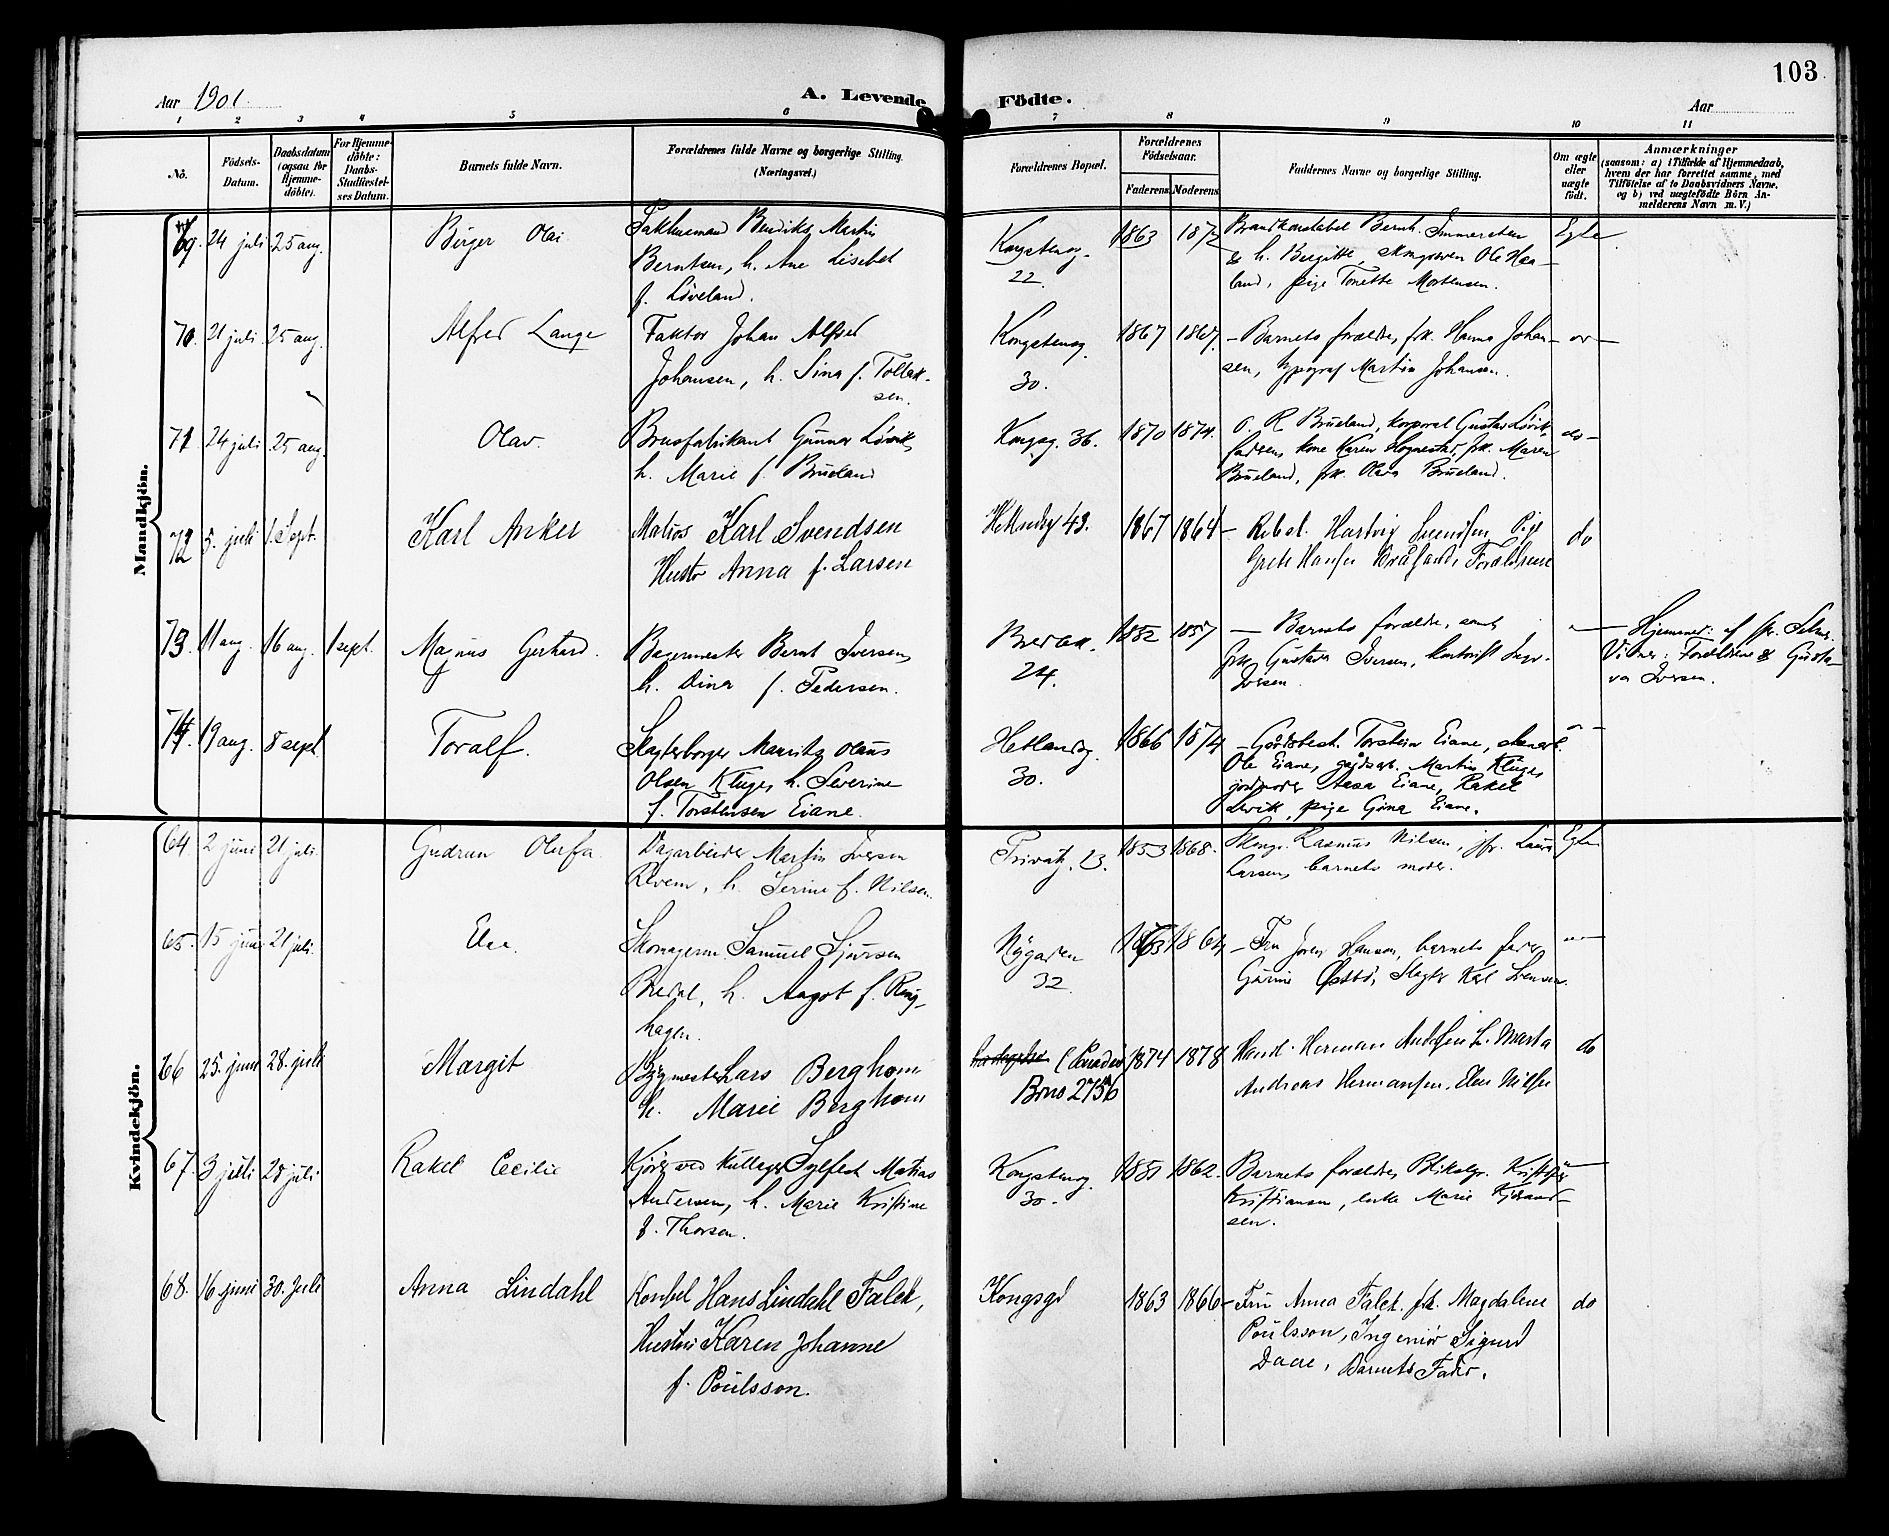 103
Aar 1901.
A. Levende Födte.
Aar
1 2 3 4 5 6 7 8 9 10 11
No.
Födsels-
Datum.
Daabsdatum
(ogsaa for
Hjemme-
döbte).
For Hjemme-
döbte:
Daabs-
Stadfæstel-
ses Datum.
Barnets fulde Navn.
Forældrenes fulde Navne og borgerlige Stilling.
(Næringsvei.)
Forældrenes Bopæl.
Forældrenes
Födselsaar.
Faderens. Moderens.
Faddernes Navne og borgerlige Stilling.
Om ægte
eller
uægte
födt.
Anmærkninger
(saasom: a) i Tilfælde af Hjemmedaab,
hvem der har forrettet samme, med
Tilföielse af to Daabsvidners Navne,
og b) ved uægtefödte Börn An-
melderens Navn m. V.)
Mandkjön.
69. 24 juli 25 aug. Birger Olai
Pakhusmand Bendiks Martin
Berntsen, h. Ane Lisebet
f. Löveland.
Kongstensg.
22.
1863 1872
Brandkonstabel Bernh.
& h. Birgitte, Ole Haa-
land, pige Tonette Mortensen.
Egte
70. 21 juli 25 aug. Alfred Lange
Faktor Johan Alfred
Johansen, h. Sina f. Tollak-
sen.
Kongstensg.
30.
1867 1867.
- Barnets forældre, frk. Hanna Johan-
sen, typograf Martin Johansen.
71 24 juli 25 aug. Olav.
Brusfabrikant Gunnar Lövik,
h. Marie f. Brueland
Kongsg. 36.
1870 1874.
O. R. Brueland, korporal Gustav Lövik,
fadrens kone Karen Hognestad, frk. Maren
Brueland, frk. Olava Brueland.
do-
72 5. juli 1. Sept. Karl Anker
Matros Karl Svendsen
Hustr Anna f. Larsen
Hetlandsg 43.
1867 1864
- Hartvig Svendsen, Pige
Grete Hansen Forældrene
do
73. 11 aug. 16 aug. 1 sept. Magnus Gerhard.
Bagermester Bernt Iversen,
h. Dina f. Pedersen.
Bredbak.
24.
1852 1857
- Barnets forældre, samt
frk Gustava Iversen,
Iversen.
- Hjemmed. af
Vidner: Forældrene & Gusta-
va Iversen.
74. 19 aug. 8 sept. Toralf.
Slagterborger Mauritz Olaus
Olsen Kluge, h. Severine
f. Torstensen Eiane.
Hetlandsg.
30.
1866 1874
- Gårdbest. Torstein Eiane, stenarb.
Ole Eiane, gårdsarb. Martin Kluge,
jordmoder Aasa Eiane, Rakel
Levik, pige Gina Eiane.
Kvindekjön.
64. 2 juni 21 juli. Gudrun Olufa.
Dagarbeider Martin Iversen
h. Serine f. Nilsen.
Privatg. 23.
1853 1868.
Rasmus Nilsen, jfr. Laura
Larsen, barnets moder.
Egte
65. 15 juni 21 juli. Else.
Skomagerm. Samuel Sjursen
Bredal, h. Aagot f. Ring-
hagen.
Nygaden
32.
1863 1864.
- Fru Hansen, barnets fader
Gurine Östbö, Slagter Karl Svensen.
66 25. juni 28. juli Margit
Bygmester Lars Berghom
h. Marie Berghom
Bms 2756
1874 1878
Hand. Herman h. Marta
Andreas Hermansen, Nilsen
do
67. 3 juli 28 juli Rakel Cecilie
Kjörer ved Kullager Sylfest Matias
Andersen, h. Marie Kristine
f. Thorsen.
Kongstensg.
30.
1862.
Barnets forældre, Blikslgr.
Kristiansen, enke Marie
sen.
68. 16 juni 30. Juli Anna Lindahl
Hans Lindahl Falck,
Hustru Karen Johanne
f. Poulsson.
Kongsgd
1863 1866
- Fru Anna Falck, frk. Magdalene
Poulsson, Ingeniör Sigurd
Daae, Barnets Fader.
do